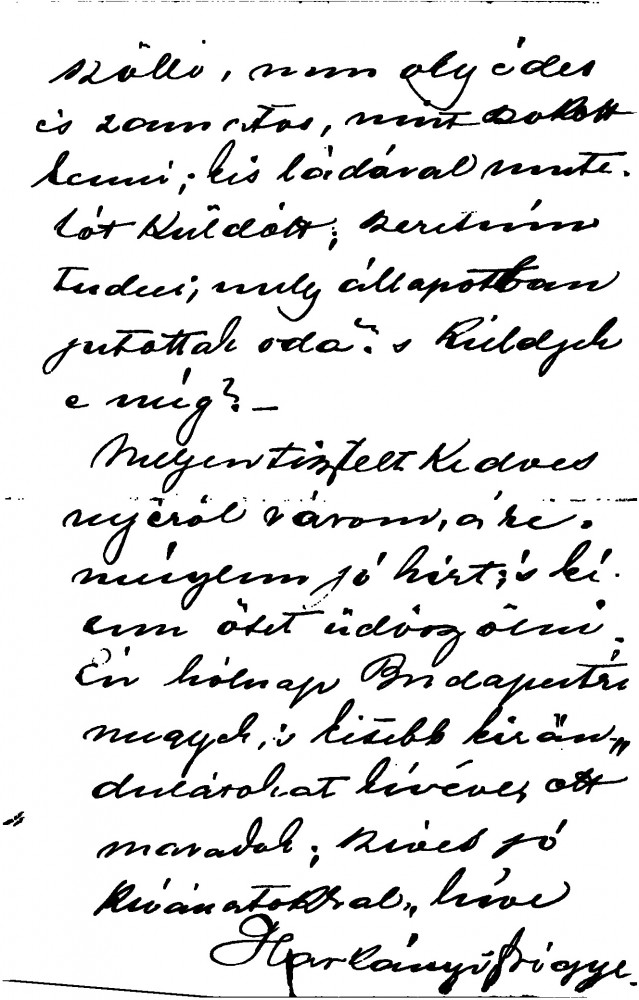 szőllő, nem oly édes
és zamatos, mint szokott
lenni; kis ládával mute-
tót küldött; szeretném
tudni, mily állapotban
jutottak oda? s küldjek
e még? —
Melyen tisztelt Kedves
nejéről várom, a re-
ményem jó hirt; 's ké-
rem őset üdvözölni.
Én hólnap Budapestre
megyek, 's kisebb kirán„
dulásokat kivéve, ott
maradok; szives jó
kivánatokkal, hive
Harkányi Frigye.